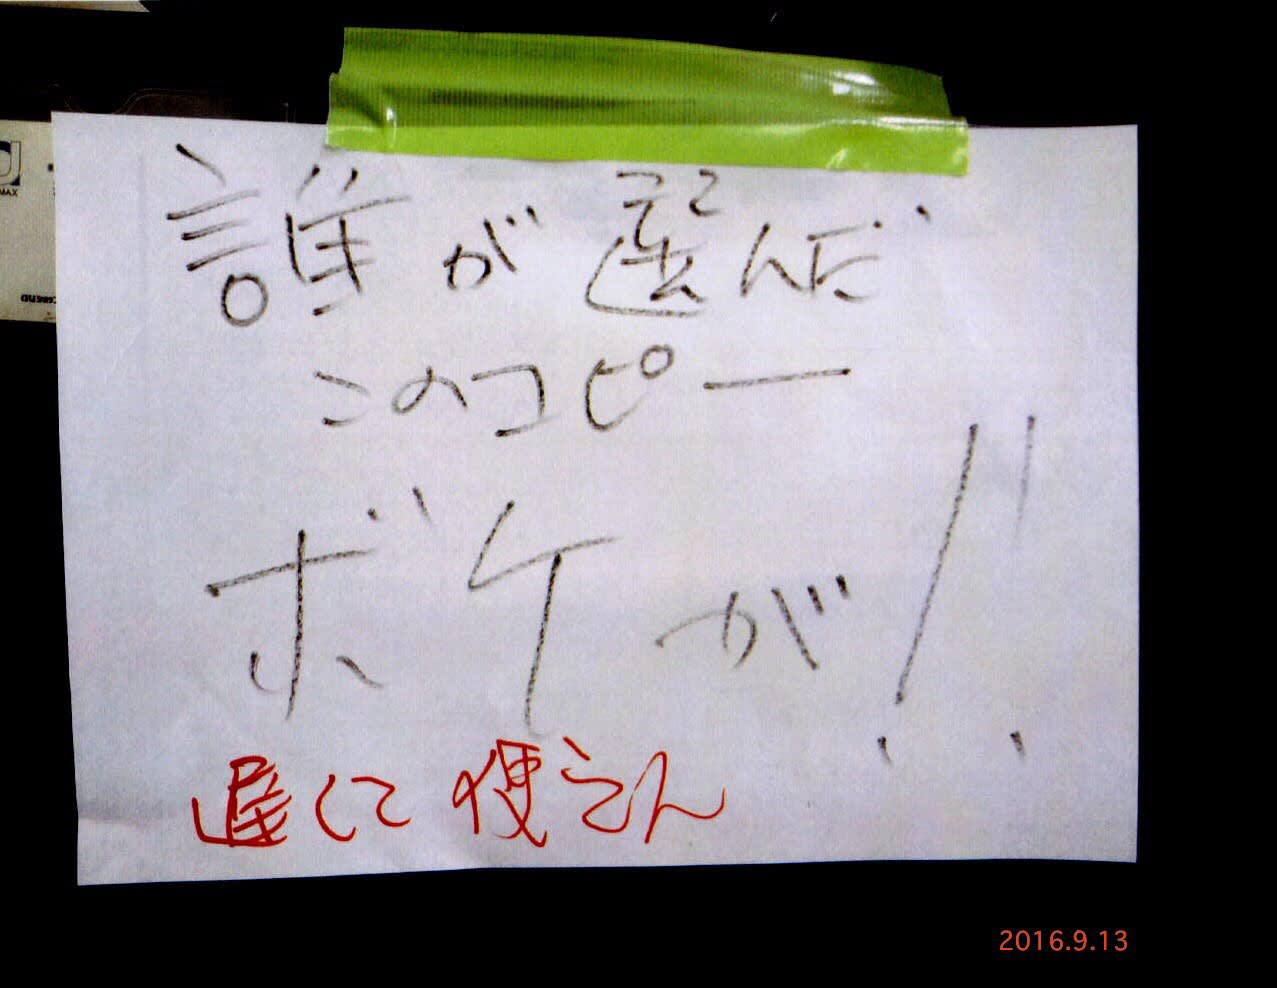 誰が選んだ
このコピー
ボケが!!
遅くて使えん
2016.9.13